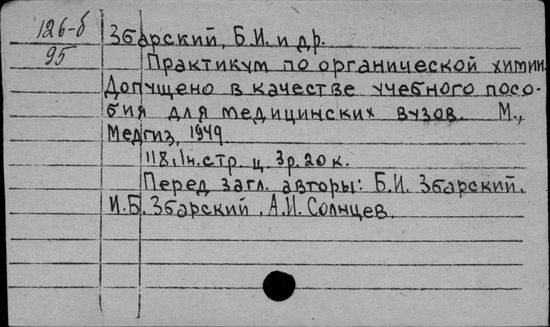 126-б
95
Збарский, Б.И. и др.
Практикум по органической химии.
Допущено в качестве учебного посо-
бия для медицинских вузов. М.,
Медгиз, 1949
118,1н.стр. ц. 3р.20к.
Перед загл. авторы: Б.И. Збарский,
И.Б. Збарский, А.И. Солнцев.